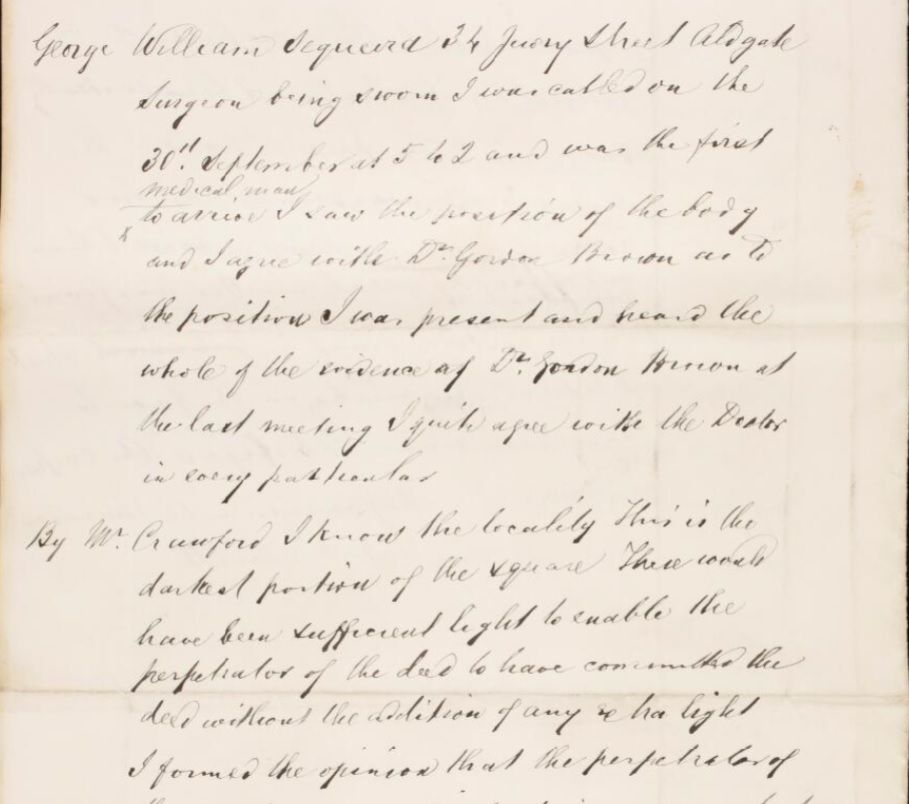 George William Sequeira 34 Jewry Street Aldgate
Surgeon being sworn I was called on the
30th. September at 5 to 2 and was the first
medical man
x to arrive I saw the position of the body
and I agree with Dr. Gordon Brown as to
the position I was present and heard the
whole of the evidence of Dr. Gordon Brown at
the last meeting I quite agree with the Doctor
in every particular
By Mr. Crawford I know the locality This is the
darkest portion of the square There would
have been sufficient light to enable the
perpetrator of the deed to have committed the
deed without the addition of any extra light
I formed the opinion that the perpetrator of